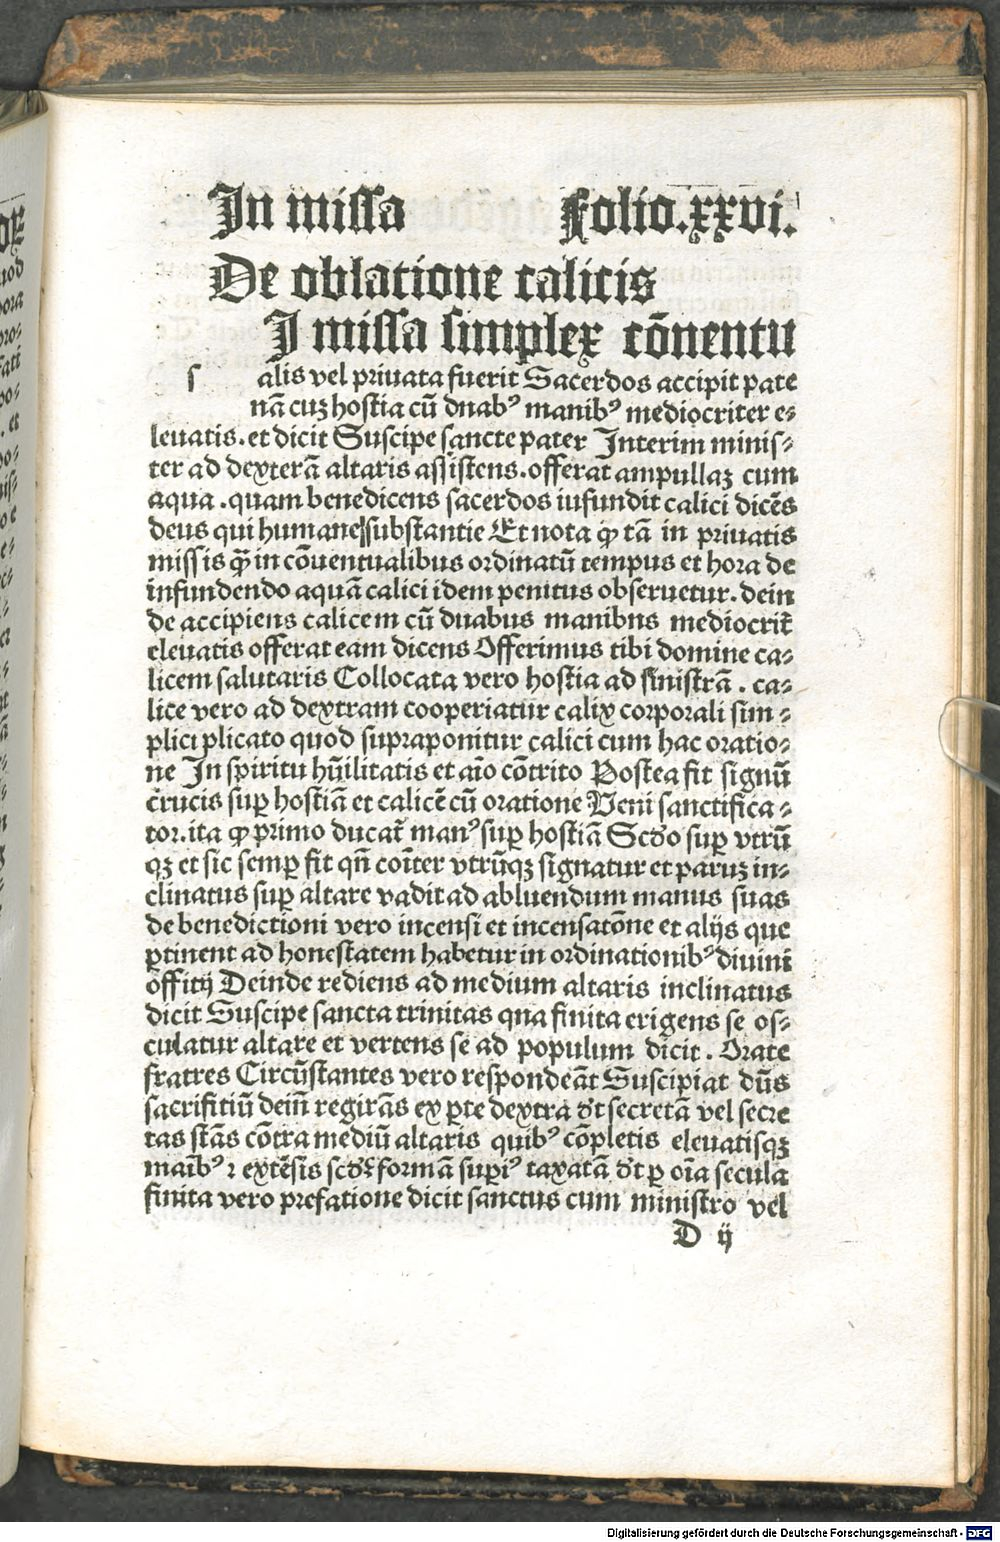 In missa Folio.xxvi.
De oblatione calicis
I missa simplex cōnentu
s alis vel priuata fuerit Sacerdos accipit pate
nā cuz hostia cū duabꝰ manibꝰ mediocriter e⸗
leuatis. et dicit Suscipe sancte pater Interim minis⸗
ter ad dexterā altaris assistens. offerat ampullaz cum
aqua. quam benedicens sacerdos iufundit calici dicēs
deus qui humane substantie Et nota ꝙ tā in priuatis
missis ꝙ̄ in cōuentualibus ordinatū tempus et hora de
infundendo aquā calici idem penitus obseruetur. dein
de accipiens calicem cū duabus manibus mediocrit̄
eleuatis offerat eam dicens Offerimus tibi domine ca⸗
licem salutaris Collocata vero hostia ad sinistrā. ca⸗
lice vero ad dextram cooperiatur calix corporali sim⸗
plici plicato quod supraponitur calici cum hac oratio⸗
ne In spiritu hūilitatis et aīo cōtrito Postea fit signū
crucis suꝑ hostiā et calicē cū oratione Veni sanctifica⸗
tor. ita ꝙ primo ducat̄ manꝰ suꝑ hostiā Scd̄o suꝑ vtrū
qꝫ et sic semꝑ fit qn̄ coīter vtrūqꝫ signatur et paruz in⸗
clinatus suꝑ altare vadit ad abluendum manus suas
de benedictioni vero incensi et incensatōne et alijs que
ꝑtinent ad honestatem habetur in ordinationibꝰ diuini
offitij Deinde rediens ad medium altaris inclinatus
dicit Suscipe sancta trinitas qua finita erigens se os⸗
culatur altare et vertens se ad populum dicit. Orate
fratres Circūstantes vero respondeāt Suscipiat dūs
sacrifitiū dein̄ regirās ex ꝑte dextra d̄t secretā vel secre
tas stās cōtra mediū altaris quibꝰ cōpletis eleuatisqꝫ
maībꝰ ⁊ extēsis formā suꝑiꝰ taxatā d̄t ꝑ oīa secula
finita vero prefatione dicit sanctus cum ministro vel
D ij
Digitalisierung gefördert durch die Deutsche Forschungsgemeinschaft - DFG